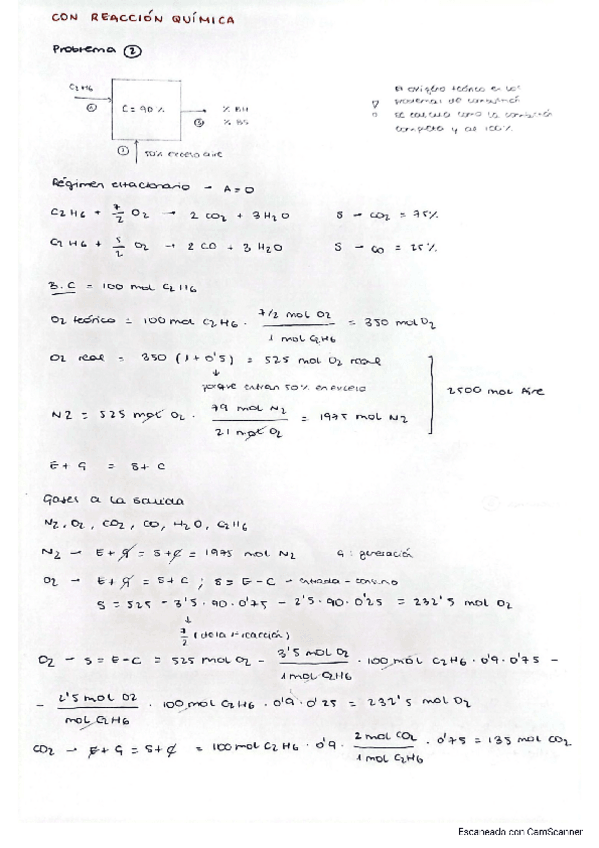 CON REACCIÓN QUÍMICA
Problema ②
C2H6
①
C = 90 %
③
% BH
% BS
② 50% exceso aire
El oxígeno teórico en los
problemas de combustión
se calcula como la combustión
completa y al 100%
Régimen estacionario → A = 0
C2H6 + 7/2 O2 → 2 CO2 + 3 H2O S → CO2 = 75%
C2H6 + 5/2 O2 → 2 CO + 3 H2O S → CO = 25%
B.C = 100 mol C2H6
O2 teórico = 100 mol C2H6 · 7/2 mol O2 / 1 mol C2H6 = 350 mol O2
O2 real = 350 (1 + 0'5) = 525 mol O2 real
porque entran 50% en exceso
2500 mol Aire
N2 = 525 mol O2 · 79 mol N2 / 21 mol O2 = 1975 mol N2
E + G = S + C
Gases a la salida
N2, O2, CO2, CO, H2O, C2H6
N2 → E + G = S + C = 1975 mol N2 G: generación
O2 → E + G = S + C ; S = E - C → entrada - consumo
S = 525 - 3'5 · 90 · 0'75 - 2'5 · 90 · 0'25 = 232'5 mol O2
↓
7/2 (de la reacción)
O2 → S = E - C = 525 mol O2 - 3'5 mol O2 / 1 mol C2H6 · 100 mol C2H6 · 0'9 · 0'75 -
- 2'5 mol O2 / mol C2H6 · 100 mol C2H6 · 0'9 · 0'25 = 232'5 mol O2
CO2 → E + G = S + C = 100 mol C2H6 · 0'9 · 2 mol CO2 / 1 mol C2H6 · 0'75 = 135 mol CO2
Escaneado con CamScanner